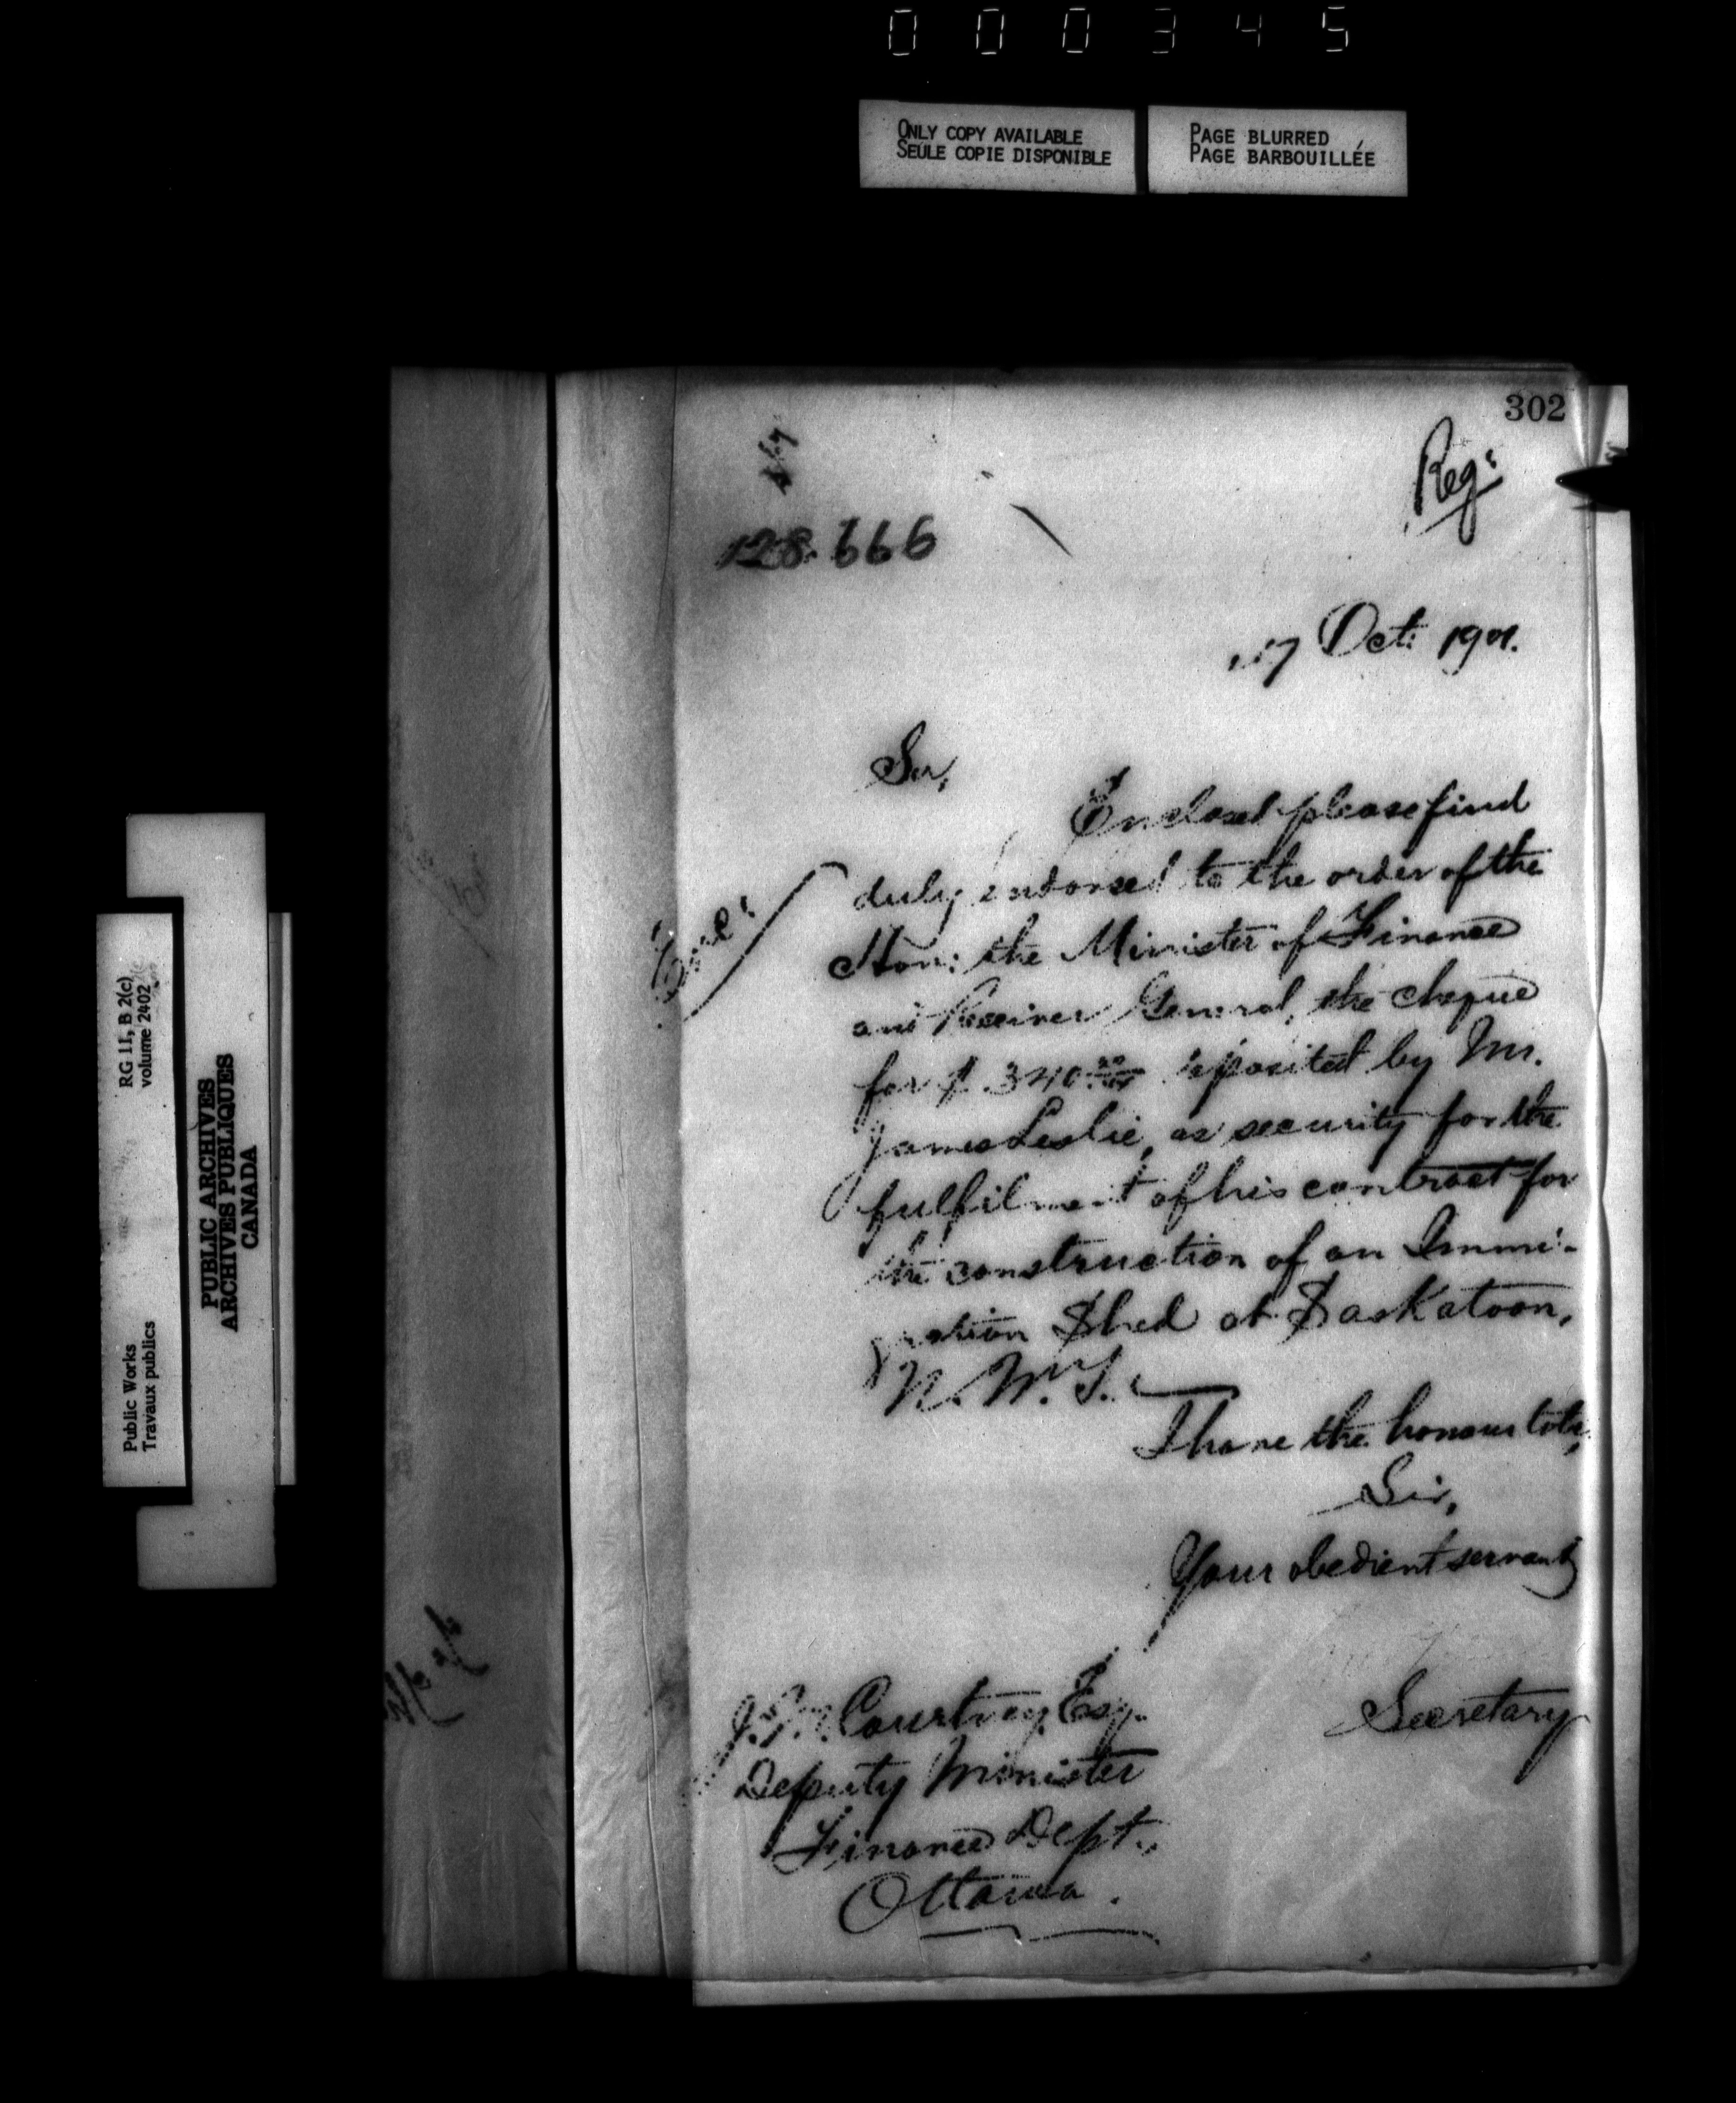 000345
ONLY COPY AVAILABLE
SEULE COPIE DISPONIBLE
PAGE BLURRED
PAGE BARBOUILLÉE
RG 11, B 2(c)
volume 2402
Public Works
Travaux publics
PUBLIC ARCHIVES
ARCHIVES PUBLIQUES
CANADA
302
Reg:
128.666
17 Oct: 1901.
Sir,
Enclosed please find
Enc:
duly endorsed to the order of the
Hon: the Minister of Finance
and Receiver General, the cheque
for $ 340 deposited by Mr.
James Leslie, as security for the
fulfilment of his contract for
the construction of an Immi-
gration Shed at Saskatoon,
N. W. T.
I have the honour to be,
Sir,
Your obedient servant
Secretary
J. M. Courtney, Esq.
Deputy Minister
Finance Dept.,
Ottawa.